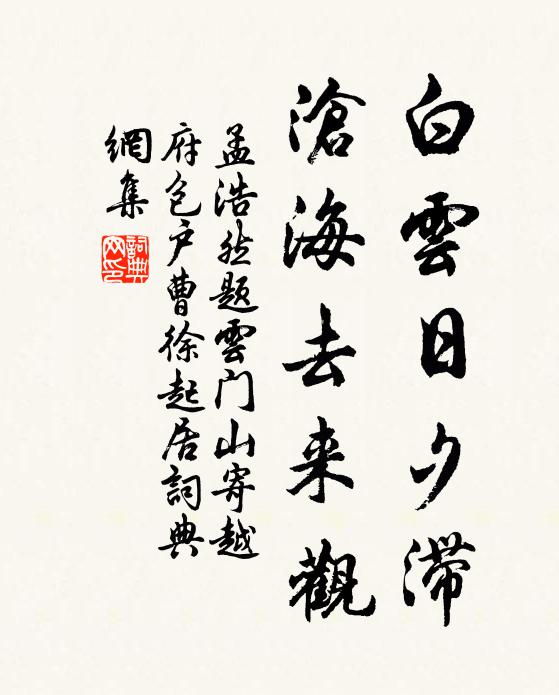 白雲日夕滯
滄海去来觀
孟浩然题雲门山寄越
府包户曹徐起居詞典
網集
詞典網印